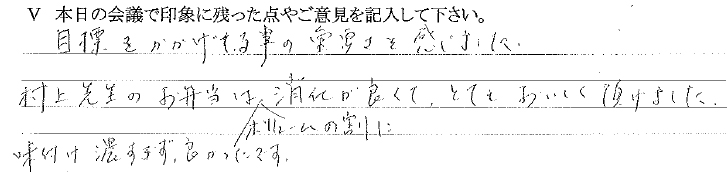 V 本日の会議で印象に残った点やご意見を記入して下さい。
目標をかかげする事の重要さを感じました。
村上先生のお弁当は、消化が良くて、とてもおいしく頂けました。
ボリュームの割に
味付け濃すぎず、良かったです。